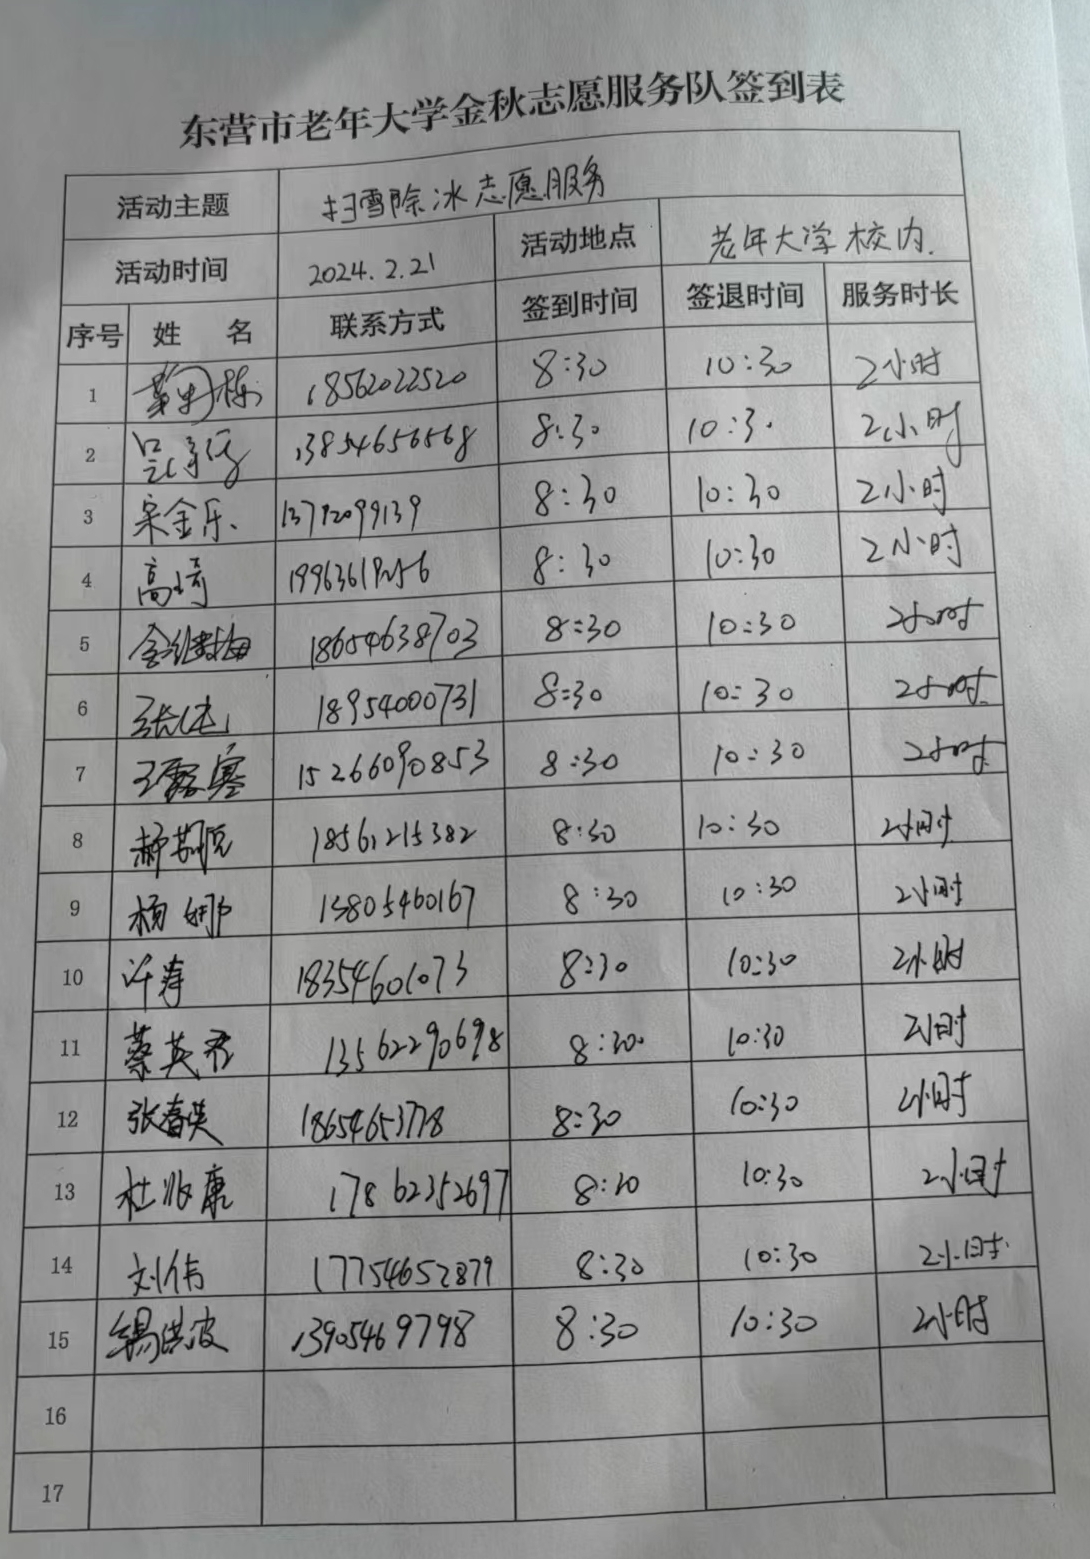 东营市老年大学金秋志愿服务队签到表
活动主题 扫雪除冰志愿服务
活动时间 2024.2.21 活动地点 老年大学校内.
序号 姓 名 联系方式 签到时间 签退时间 服务时长
1 18562022520 8:30 10:30 2小时
2 13854656568 8:30 10:30 2小时
3 宋金乐 13792099139 8:30 10:30 2小时
4 高琦 8:30 10:30 2小时
5 18654638703 8:30 10:30 2小时
6 18954000731 8:30 10:30 2小时
7 王露寒 15266090853 8:30 10:30 2小时
8 18561215382 8:30 10:30 2小时
9 杨娜 13805460167 8:30 10:30 2小时
10 许寿 18354601073 8:30 10:30 2小时
11 蔡英君 13562290698 8:30 10:30 2小时
12 张春英 18654653778 8:30 10:30 2小时
13 杜兆康 17862352697 8:30 10:30 2小时
14 刘伟 17754652879 8:30 10:30 2小时
15 13905469798 8:30 10:30 2小时
16
17